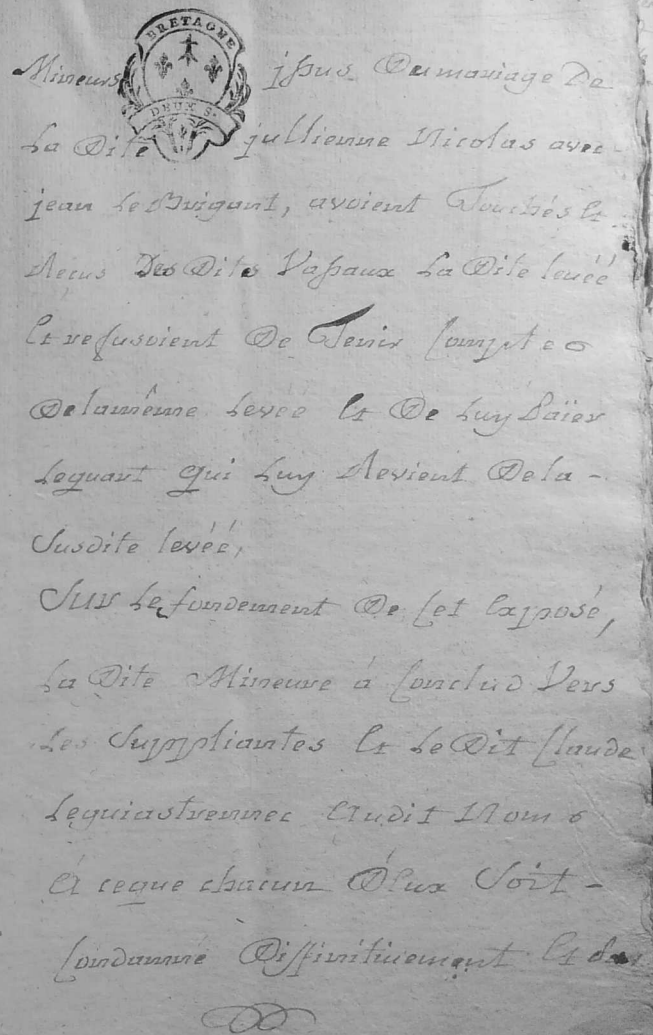 BRETAGNE
DEUX S.
Mineurs issus Du mariage De
La Dite jullienne Nicolas avec
jean Le Buigant, avoient Touchés Et
Reçus Des Dits Vassaux La Dite levéé
Et refusoient De Tenir Compte
De la même Levée Et De Luy Païer
Le quart qui Luy Revient De la -
Susdite levéé,
Sur Le fondement De Cet Exposé,
La Dite Mineure á Conclud Vers
Les Suppliantes Et Le Dit Claude
Leguiastrennec Audit Nom
A ce que chacun D'Eux Soit -
Condamné Diffinitivement Et